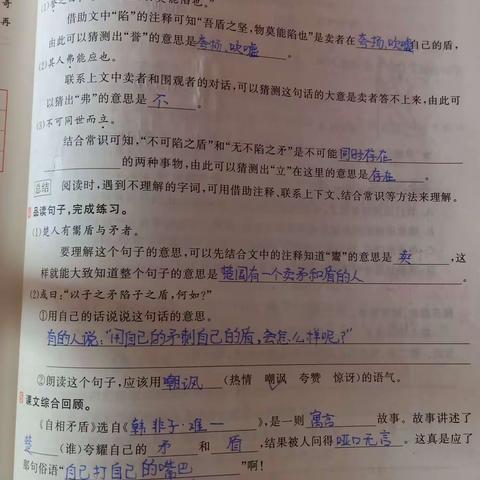 奇
再
借助文中“陷”的注释可知“吾盾之坚,物莫能陷也”是卖者在夸扬、吹嘘自己的盾,
由此可以猜测出“誉”的意思是夸扬、吹嘘。
(2)其人弗能应也。
联系上文中卖者和围观者的对话,可以猜测这句话的大意是卖者答不上来,由此可
以猜出“弗”的意思是 不 。
(3)不可同世而立。
结合常识可知,“不可陷之盾”和“无不陷之矛”是不可能同时存在
的两种事物,由此可以猜测出“立”在这里的意思是存在。
总结 阅读时,遇到不理解的字词,可用借助注释、联系上下文、结合常识等方法来理解。
品读句子,完成练习。
(1)楚人有鬻盾与矛者。
要理解这个句子的意思,可以先结合文中的注释知道“鬻”的意思是 卖 ,这
样就能大致知道整个句子的意思是楚国有一个卖矛和盾的人
(2)或曰:“以子之矛陷子之盾,何如?”
①用自己的话说说这句话的意思。
有的人说:“用自己的矛刺自己的盾,会怎么样呢?”
②朗读这个句子,应该用嘲讽(热情 嘲讽 夸赞 惊讶)的语气。
课文综合回顾。
《自相矛盾》选自《韩非子·难一》,是一则寓言故事。故事讲述了
楚(谁)夸耀自己的 矛 和 盾 ,结果被人问得哑口无言。这真是应了
那句俗语“自己打自己的嘴巴”啊!